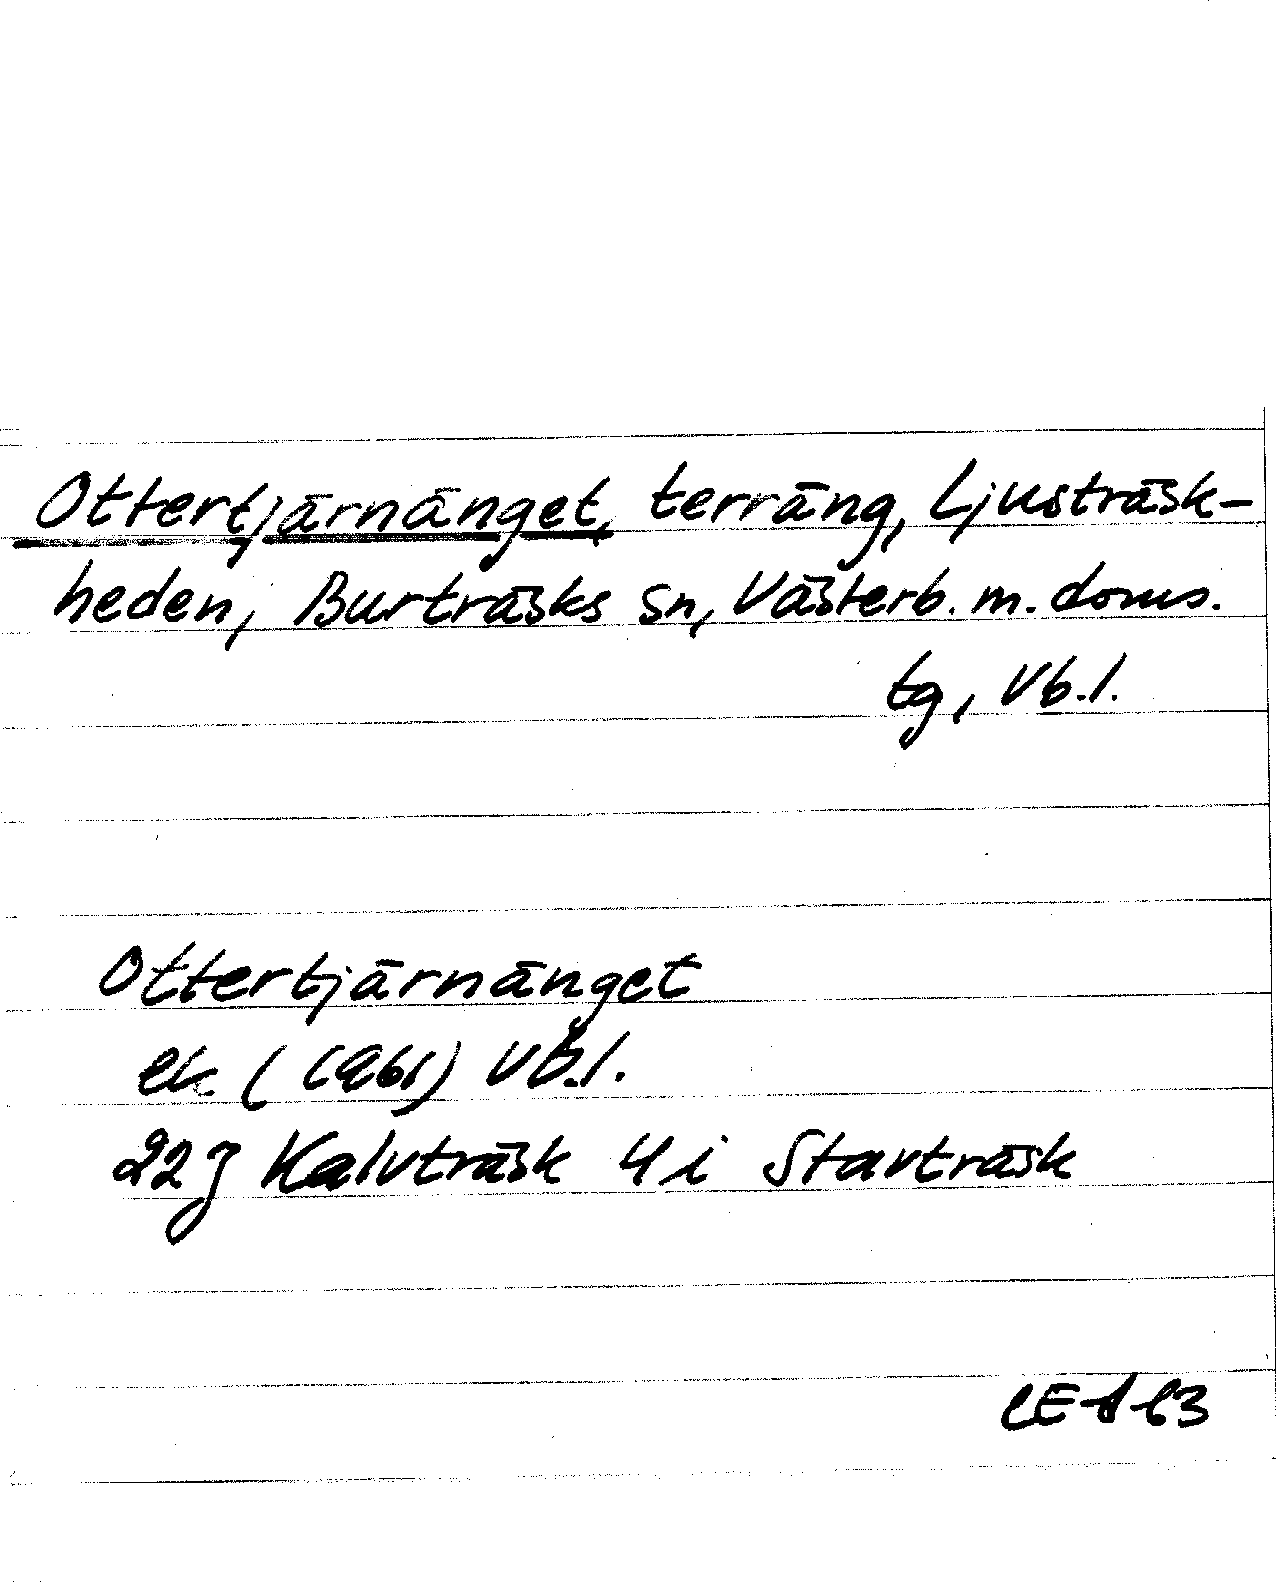 Ottertjärnänget, terräng, Ljusträsk-
heden, Burträsks sn, Västerb. m. doms.
tg, Vb. l.
Ottertjärnänget
ek (1961) Vb. l.
22 J Kalvträsk 4 i Stavträsk